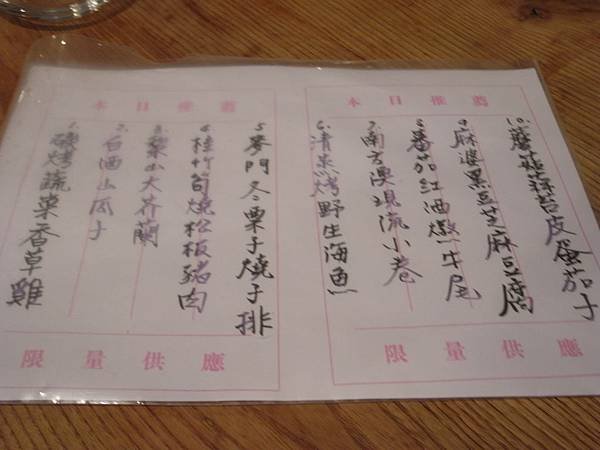 本日推薦
10.蘑菇蒜苔皮蛋茄子
9.麻婆黑豆芝麻豆腐
8.番茄紅酒燉牛尾
7.南方澳現流小卷
6.清蒸烤野生海魚
限量供應
本日推薦
5.麥門冬栗子燒子排
4.桂竹筍燒松板豬肉
3.梨山大芥蘭
2.白酒山瓜子
1.碳烤蔬菜香草雞
限量供應